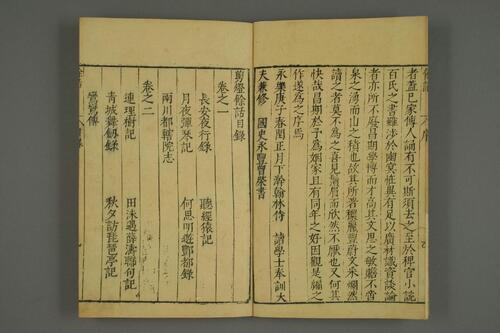 者蓋已家傳人誦有不可斯須去之至於稗官小說
百氏之書雖涉於幽冥怪異有足以廣材識資談論
者亦所不廢昌期學博而才高其文思之敏贍不啻
泉之湧而山之積也故其所著穠麗豐蔚文采爛然
讀之者莫不為之喜見鬚眉而欣然不厭也又何其
快哉昌期於予為姻家且有同年之好因觀是編之
作遂為之序焉
永樂庚子春閏正月下澣翰林侍 讀學士奉訓大
夫兼修 國史永豐曾棨書
剪燈餘話目錄
卷之一
長安夜行錄 聽經猿記
月夜彈琴記 何思明遊酆都錄
兩川都轄院志
卷之二
連理樹記 田洙遇薛濤聯句記
青城舞劒錄 秋夕訪琵琶亭記
鸞鸞傳